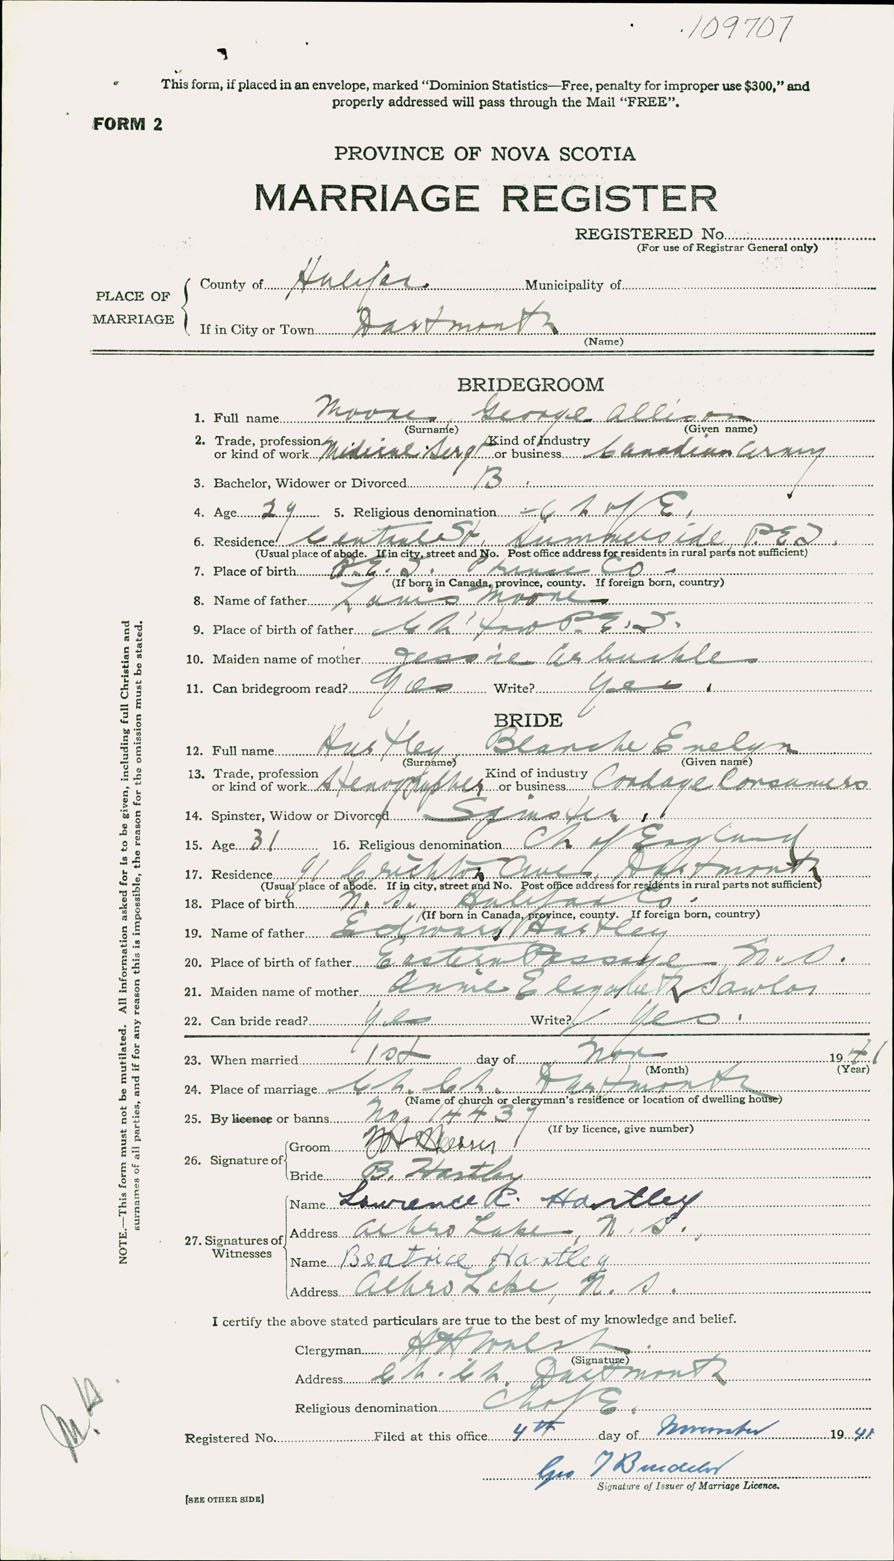 109707
This form, if placed in an envelope, marked "Dominion Statistics—Free, penalty for improper use $300," and
properly addressed will pass through the Mail "FREE".
FORM 2
PROVINCE OF NOVA SCOTIA
MARRIAGE REGISTER
REGISTERED No.
(For use of Registrar General only)
PLACE OF MARRIAGE
County of Halifax. Municipality of
If in City or Town Dartmouth
(Name)
BRIDEGROOM
1. Full name Moore, George Allison
(Surname) (Given name)
2. Trade, profession Kind of industry
or kind of work Medical Sergt or business Canadian Army
3. Bachelor, Widower or Divorced B.
4. Age 29 5. Religious denomination Ch of E.
6. Residence Central St, Summerside, P.E.I.
(Usual place of abode. If in city, street and No. Post office address for residents in rural parts not sufficient)
7. Place of birth P.E.I. Prince Co.
(If born in Canada, province, county. If foreign born, country)
8. Name of father Moore
9. Place of birth of father P.E.I.
10. Maiden name of mother Jessie Arbuckle
11. Can bridegroom read? Yes Write? Yes.
BRIDE
12. Full name Hartley, Blanche Evelyn
(Surname) (Given name)
13. Trade, profession Kind of industry
or kind of work Stenographer or business Cordage Consumers
14. Spinster, Widow or Divorced Spinster
15. Age 31 16. Religious denomination Ch of England
17. Residence 91 Crichton Ave, Dartmouth
(Usual place of abode. If in city, street and No. Post office address for residents in rural parts not sufficient)
18. Place of birth N.S. Halifax Co.
(If born in Canada, province, county. If foreign born, country)
19. Name of father Edward Hartley
20. Place of birth of father Eastern Passage N.S.
21. Maiden name of mother Annie Elizabeth Sawlor
22. Can bride read? Yes Write? Yes.
23. When married 1st day of Nov 1941
(Month) (Year)
24. Place of marriage Ch. Ch. Dartmouth
(Name of church or clergyman's residence or location of dwelling house)
25. By licence or banns No. 14437
(If by licence, give number)
26. Signature of
Groom
Bride B. Hartley
27. Signatures of Witnesses
Name Lawrence C. Hartley
Address Albro Lake, N.S.
Name Beatrice Hartley
Address Albro Lake, N.S.
I certify the above stated particulars are true to the best of my knowledge and belief.
Clergyman H H Walsh
(Signature)
Address Ch. Ch. Dartmouth
Religious denomination Ch of E.
Registered No. Filed at this office 4th day of November 1941
Geo
Signature of Issuer of Marriage Licence.
[SEE OTHER SIDE]
NOTE.—This form must not be mutilated. All information asked for is to be given, including full Christian and
surnames of all parties, and if for any reason this is impossible, the reason for the omission must be stated.